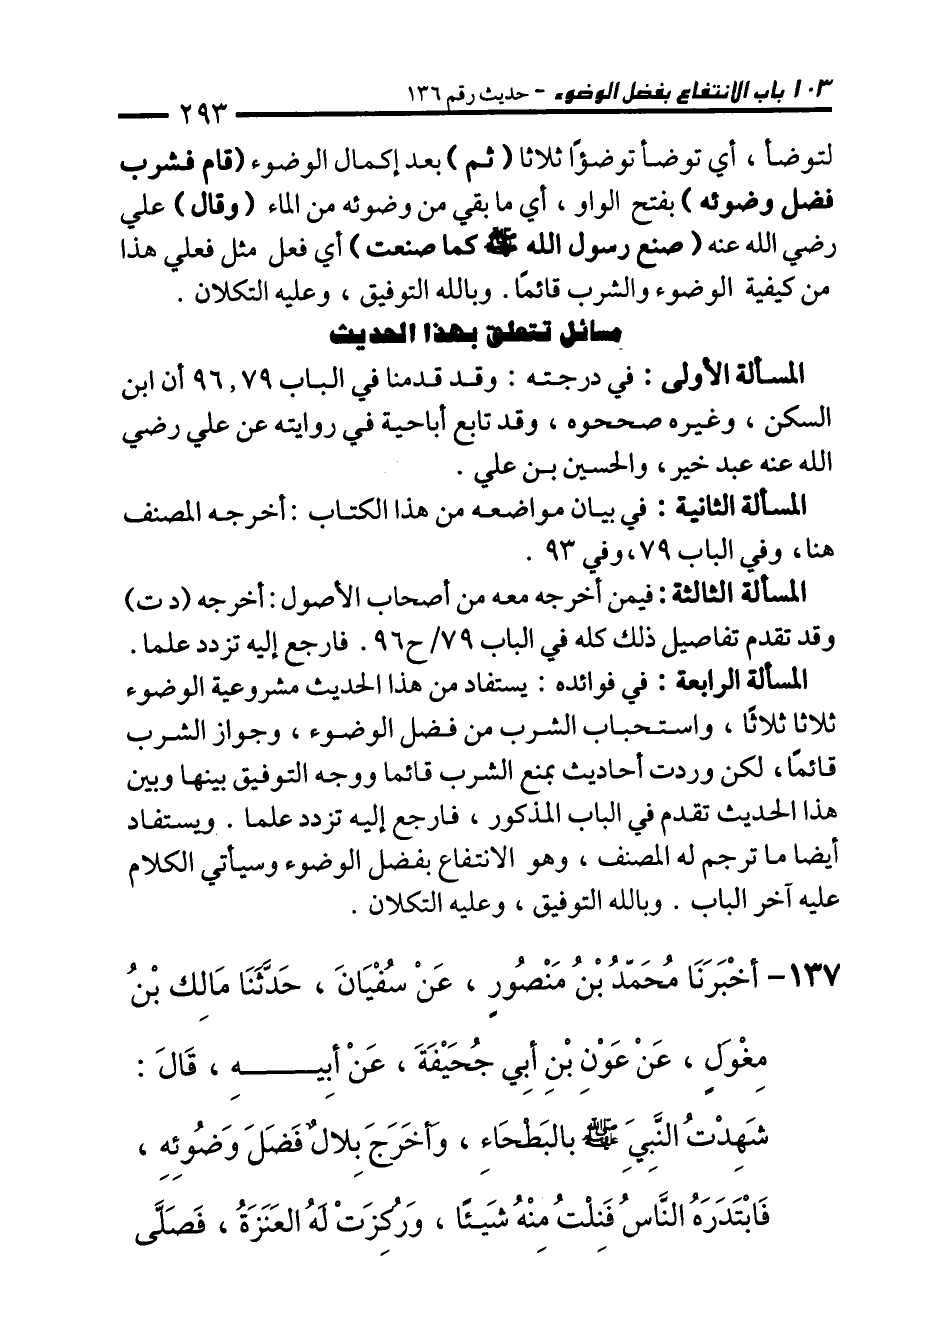 ١٠٣ باب الانتفاع بفضل الوضوء - حديث رقم ١٣٦
٢٩٣
لتوضأ ، أي توضأ توضؤًا ثلاثا ( ثم ) بعد إكمال الوضوء (قام فشرب
فضل وضوئه ) بفتح الواو ، أي ما بقي من وضوئه من الماء ( وقال ) علي
رضي الله عنه ( صنع رسول الله ﷺ كما صنعت ) أي فعل مثل فعلي هذا
من كيفية الوضوء والشرب قائمًا. وبالله التوفيق ، وعليه التكلان .
مسائل تتعلق بهذا الحديث
المسألة الأولى : في درجته : وقد قدمنا في الباب ٧٩ , ٩٦ أن ابن
السكن ، وغيره صححوه ، وقد تابع أباحية في روايته عن علي رضي
الله عنه عبد خير، والحسين بن علي .
المسألة الثانية : في بيان مواضعه من هذا الكتاب : أخرجه المصنف
هنا، وفي الباب ٧٩، وفي ٩٣ .
المسألة الثالثة : فيمن أخرجه معه من أصحاب الأصول: أخرجه (د ت)
وقد تقدم تفاصيل ذلك كله في الباب ٧٩/ ح٩٦ . فارجع إليه تزدد علما .
المسألة الرابعة : في فوائده : يستفاد من هذا الحديث مشروعية الوضوء
ثلاثا ثلاثًا ، واستحباب الشرب من فضل الوضوء ، وجواز الشرب
قائمًا، لكن وردت أحاديث بمنع الشرب قائما ووجه التوفيق بينها وبين
هذا الحديث تقدم في الباب المذكور ، فارجع إليه تزدد علما . ويستفاد
أيضا ما ترجم له المصنف ، وهو الانتفاع بفضل الوضوء وسيأتي الكلام
عليه آخر الباب . وبالله التوفيق ، وعليه التكلان .
١٣٧- أَخْبَرَنَا مُحَمَّدُ بْنُ مَنْصُورٍ ، عَنْ سُفْيَانَ ، حَدَّثَنَا مَالِك بْنُ
مِغْوَلٍ ، عَنْ عَوْنِ بْنِ أَبِي جُحَيْفَةَ ، عَنْ أَبِيـــهِ ، قَالَ :
شَهِدْتُ النَّبِيَ ﷺ بِالبَطْحَاءِ ، وَأَخْرَجَ بِلالٌ فَضَلَ وَضُوئِهِ ،
فَابْتَدَرَهُ النَّاسُ فَنِلْتُ مِنْهُ شَيَئًا ، وَرُكِزَتْ لَهُ العَنَزَةُ ، فَصَلَّى